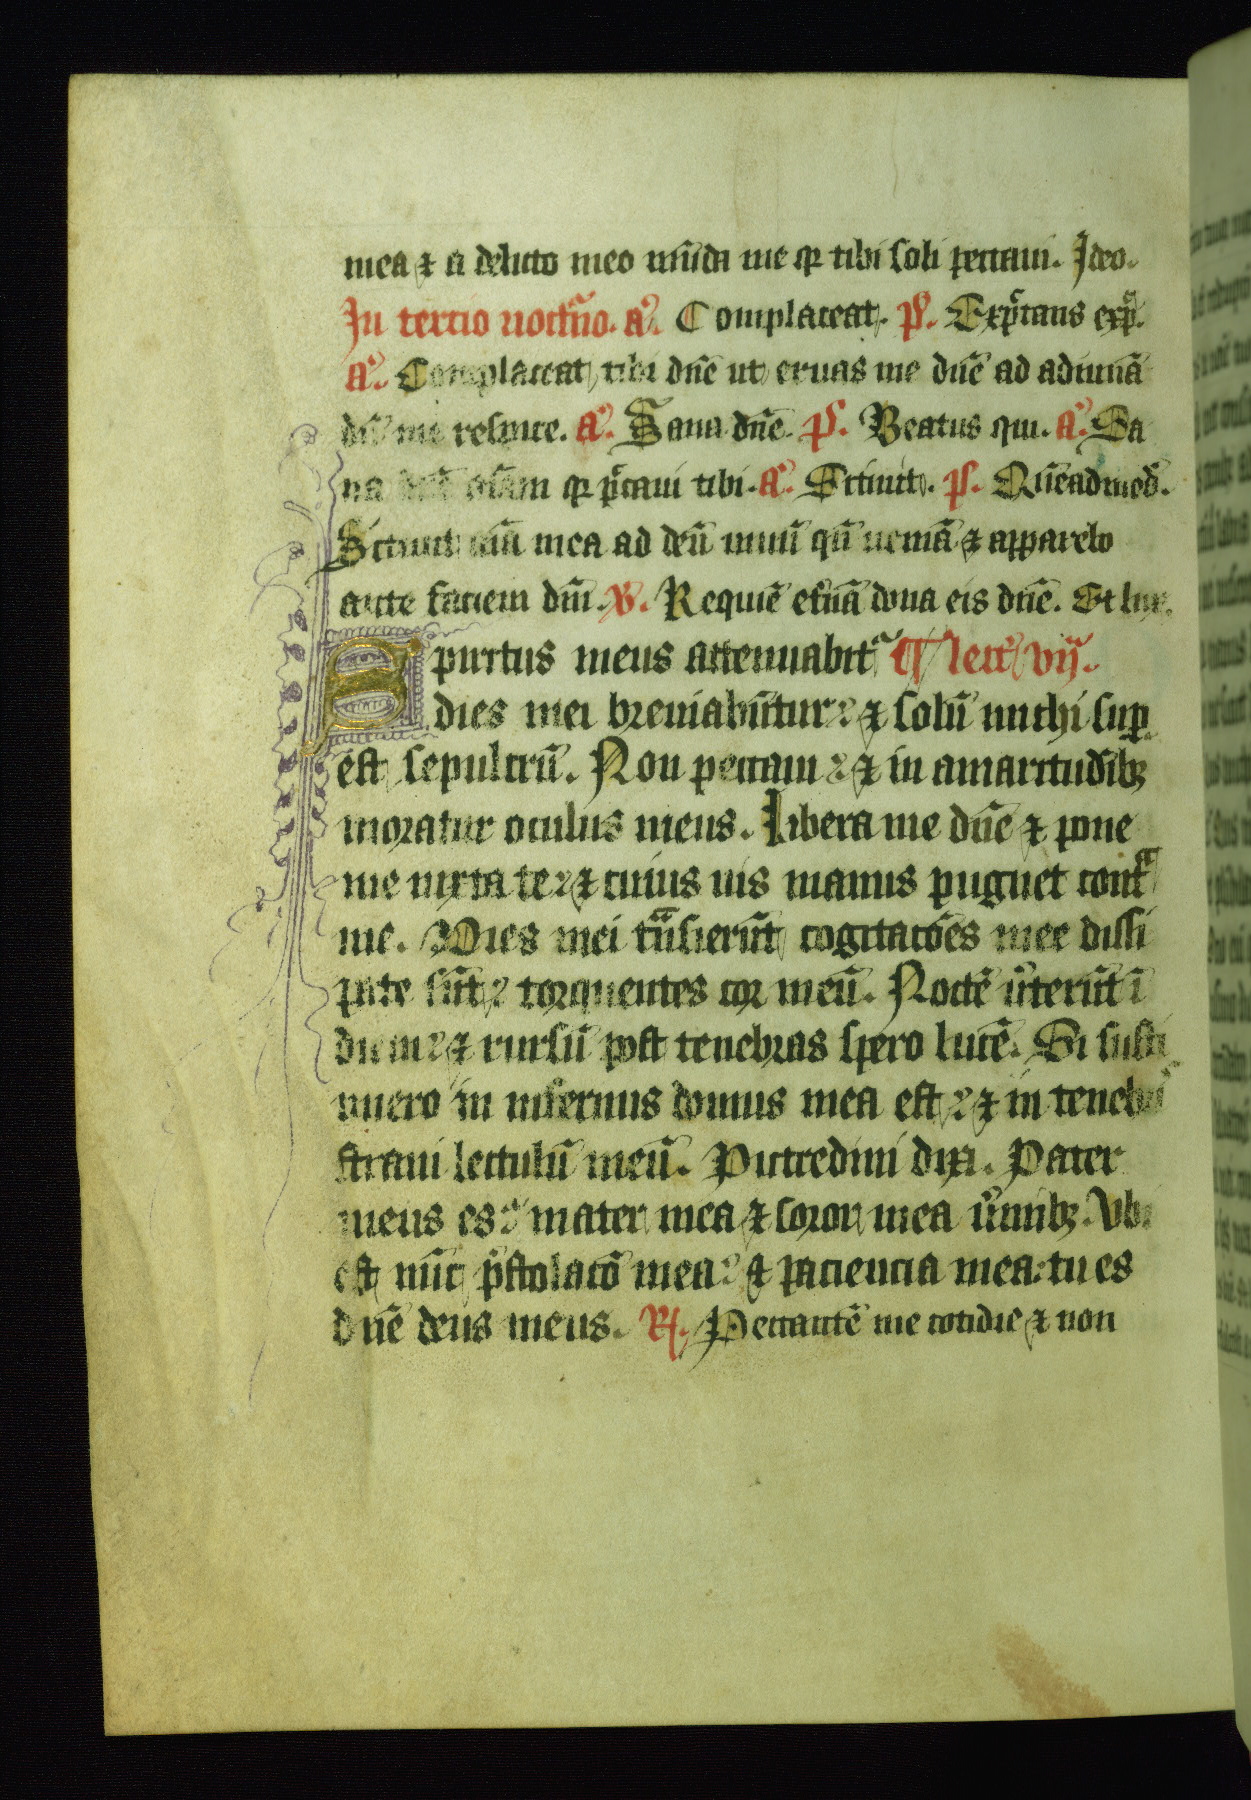 mea ⁊ a delicto meo mūda me qꝛ tibi soli peccaui. Ideo.
In tercio noct̄no. a᷎. Complaceat. p̄s. Exp̄ctans exp̄.
a᷎. Complaceat tibi dn̄e ut eruas me dn̄e ad adiuuā
dū me respice. a᷎. Sana dn̄e. p̄s. Beatus qui. a᷎. Sa
na aīam qꝛ p̄ccaui tibi. a᷎. Sitiuit. ps. Quēadmod̄.
Sitiuit aīa mea ad deū uiuū qn̄ ueniā ⁊ apparebo
ante faciem dn̄i. v̄. Requiē et̄nā dona eis dn̄e. Et lux.
Spiritus meus attenuabit᷑ ¶ lect̄ vij᷎.
dies mei breuiabūtur ⁊ solū michi suꝑ
est sepulcrū. Non peccaui ⁊ in amaritudībꝫ
moratur oculus meus. Libera me dn̄e ⁊ pone
me iuxta te ⁊ cuius uis manus pugnet contᷓ
me. Dies mei tn̄sierūt cogitacōes mee dissi
pate sūt torquentes cor meū. Noctē ūterūt ī
diem ⁊ rursū post tenebras spero lucē. Si susti
nuero in infernus domus mea est ⁊ in tenebris
straui lectulū meū. Putredini dixi. Pater
meus es mater mea ⁊ soror mea ūmibꝫ. Vbi
est nūc p̄stolacō mea ⁊ paciencia mea: tu es
dn̄e deus meus. R̸. Peccantē me cotidie ⁊ non